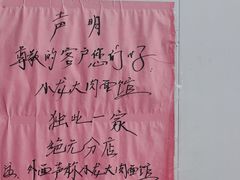 声明
尊敬的客户您们好
小龙大肉面馆
独此一家
绝无分店
外面声称小龙大肉面馆